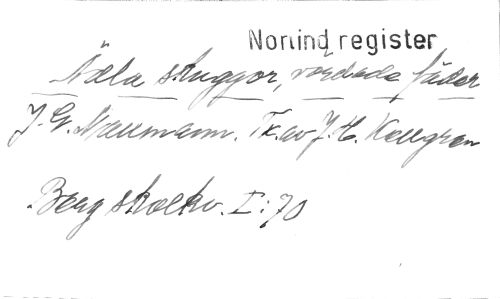 Norlind register
Ädla skuggor, vördade fäder
J. G. Naumann. Tx. av J. H. Kellgren
Berg skolkv. I:70